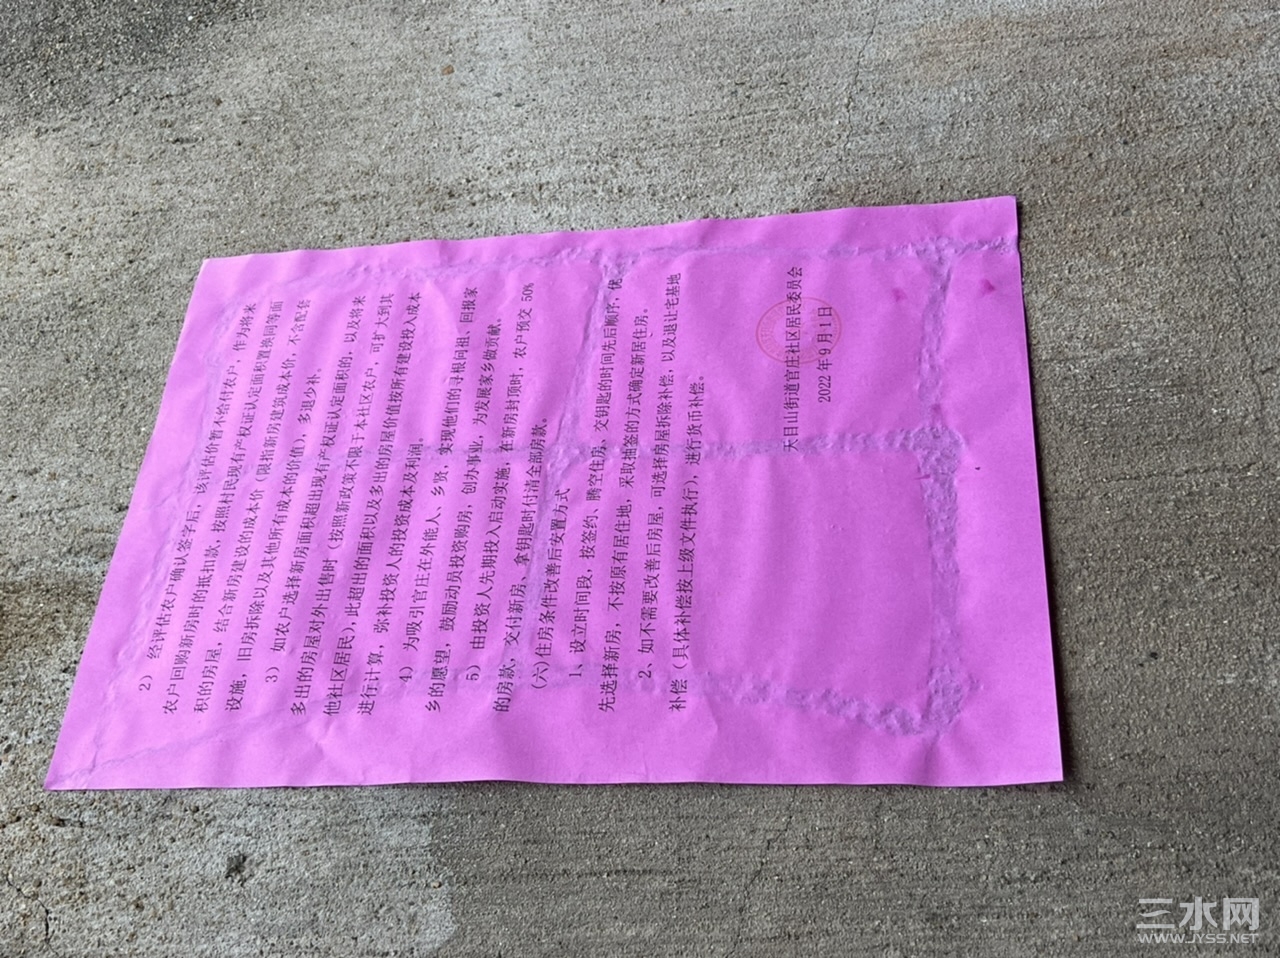 2） 经评估农户确认签字后，该评估价暂不给付农户，作为将来
农户回购新房时的抵扣款，按照村民现有产权证认定面积置换同等面
积的房屋，结合新房建设的成本价（限指新房建筑成本价，不含配套
设施，旧房拆除以及其他所有成本的价值），多退少补。
3） 如农户选择新房面积超出现有产权证认定面积的，以及将来
多出的房屋对外出售时（按照新政策不限于本社区农户，可扩大到其
他社区居民），此超出的面积以及多出的房屋价值按所有建设投入成本
进行计算，弥补投资人的投资成本及利润。
4） 为吸引官庄在外能人、乡贤，实现他们的寻根问祖、回报家
乡的愿望，鼓励动员投资购房，创办事业，为发展家乡做贡献。
5） 由投资人先期投入启动实施，在新房封顶时，农户预交 50%
的房款，交付新房、拿钥匙时付清全部房款。
（六）住房条件改善后安置方式
1、设立时间段，按签约、腾空住房、交钥匙的时间先后顺序，优
先选择新房，不按原有居住地，采取抽签的方式确定新居住房。
2、如不需要改善后房屋，可选择房屋拆除补偿，以及退让宅基地
补偿（具体补偿按上级文件执行），进行货币补偿。
天目山街道官庄社区居民委员会
2022 年 9 月 1 日
三水网
WWW.JYSS.NET